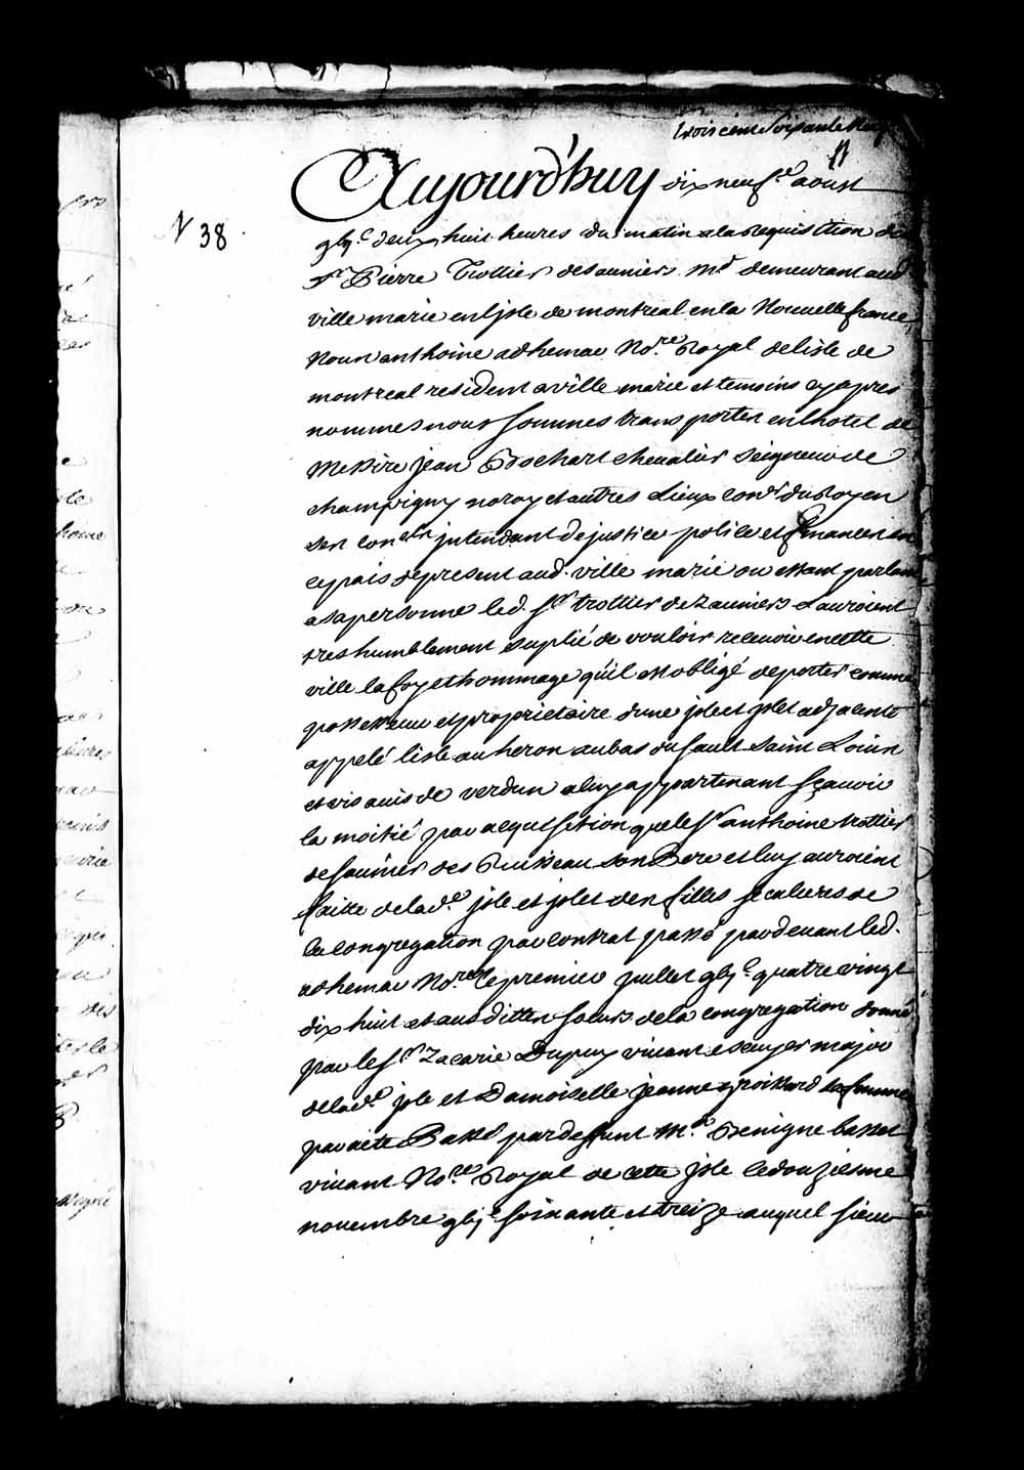 trois cent soixante neuf
N 38
Aujourd'huy dix neufe. aoust
gbijc. deux huit heures du matin a la requisition du
Sr Pierre Trottier desauniers md demeurant aud
ville marie en l'jsle de montreal en la Nouvelle france
Nous anthoine adhemar Nore. Royal de lisle de
montreal resident a ville marie et temoins cy apres
nommes nous sommes transportes en lhotel de
Messire jean Bochart chevalier seigneur de
champigny noroy et autres Lieux conr. du Roy en
ses conels jntendant de justice police et finances en
ce pais de present aud. ville marie ou estant parlant
a sa personne led. sr trottier dezauniers Lauroient
tres humblement suplié de vouloir recevoir en cette
ville la foy et hommage qu'il est obligé de porter comme
possesseur et proprietaire dune jsle et jslet adjacente
appelé lisle au heron au bas du sault saint Louis
et vis avis de verdun a luy appartenant sçavoir
la moitié par acquisetion que le sr anthoine trottier
desauniers des Ruisseau son Pere et luy auroient
faitte de lade. jsle et jslet des filles seculieres de
la congregation par contrat passé pardevant led.
adhemar Nore. le premier juillet gbjc. quatre vingt
dix huit et aus dittes soeurs de la congregation donné
par le sr Zacarie Dupuy vivant escuyer major
de lade. jsle et Damoiselle jeanne groissard sa femme
par acte Passé par defunt Mr. Benigne basset
vivant Nore. Royal de cette jsle le douziesme
novembre gbjc soixante et treize auquel sieur